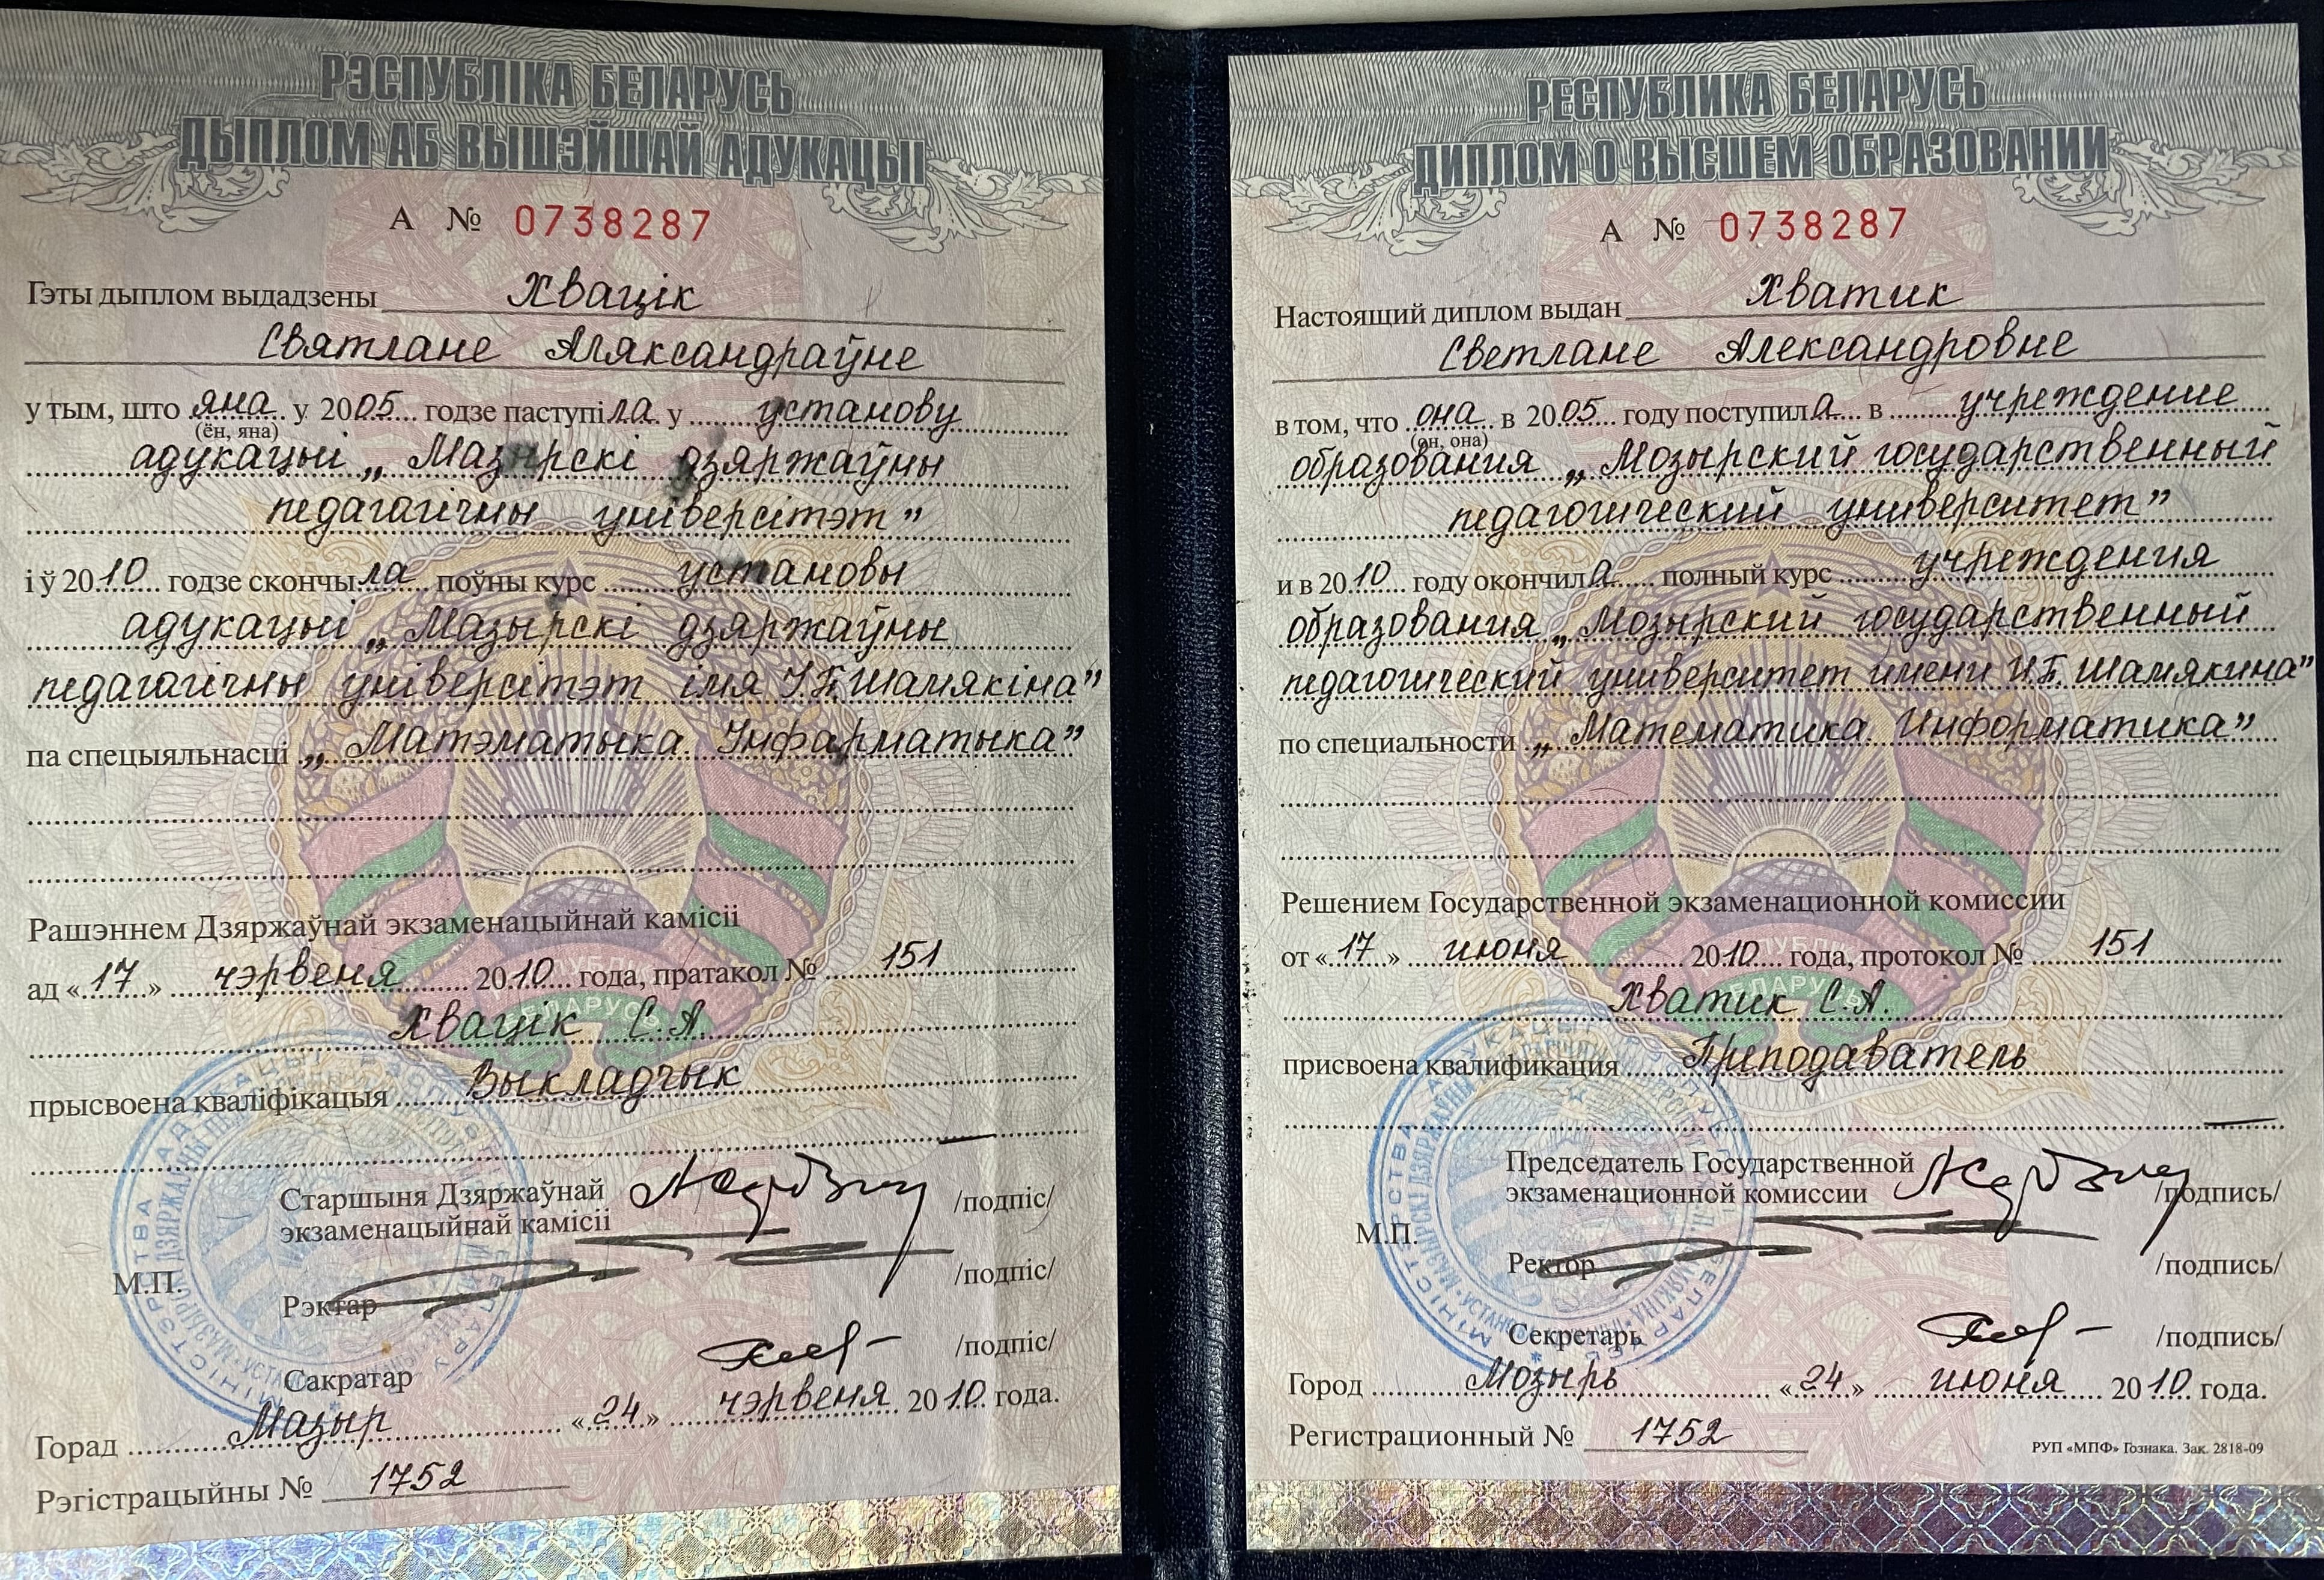 РЭСПУБЛІКА БЕЛАРУСЬ
ДЫПЛОМ АБ ВЫШЭЙШАЙ АДУКАЦЫІ
А № 0738287
Гэты дыплом выдадзены Хвацік
Святлане Аляксандраўне
у тым, што яна у 2005 годзе паступіла у установу
(ён, яна)
адукацыі „Мазырскі дзяржаўны
педагагічны універсітэт”
і ў 2010 годзе скончыла поўны курс установы
адукацыі „Мазырскі дзяржаўны
педагагічны універсітэт імя І.П. Шамякіна”
па спецыяльнасці „Матэматыка. Інфарматыка”
Рашэннем Дзяржаўнай экзаменацыйнай камісіі
ад «17» чэрвеня 2010 года, пратакол № 151
Хвацік С.А.
прысвоена кваліфікацыя Выкладчык
Старшыня Дзяржаўнай
экзаменацыйнай камісіі /подпіс/
М.П.
Рэктар /подпіс/
Сакратар /подпіс/
Горад Мазыр «24» чэрвеня 2010 года.
Рэгістрацыйны № 1752
РЕСПУБЛИКА БЕЛАРУСЬ
ДИПЛОМ О ВЫСШЕМ ОБРАЗОВАНИИ
А № 0738287
Настоящий диплом выдан Хватик
Светлане Александровне
в том, что она в 2005 году поступила в учреждение
(он, она)
образования „Мозырский государственный
педагогический университет”
и в 2010 году окончила полный курс учреждения
образования „Мозырский государственный
педагогический университет имени И.П. Шамякина”
по специальности „Математика. Информатика”
Решением Государственной экзаменационной комиссии
от «17» июня 2010 года, протокол № 151
Хватик С.А.
присвоена квалификация Преподаватель
Председатель Государственной
экзаменационной комиссии /подпись/
М.П.
Ректор /подпись/
Секретарь /подпись/
Город Мозырь «24» июня 2010 года.
Регистрационный № 1752
РУП «МПФ» Гознака. Зак. 2818-09